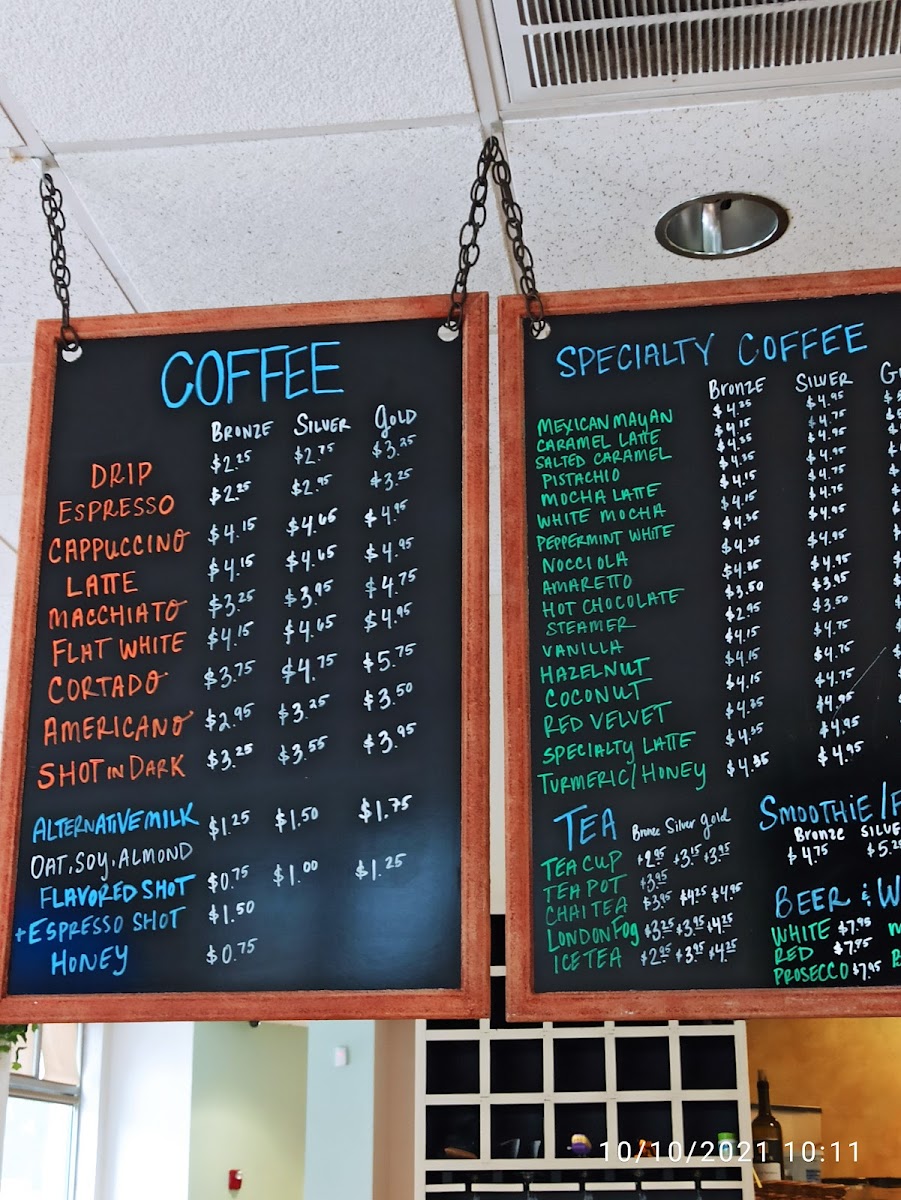 COFFEE
BRONZE SILVER GOLD
DRIP $2.25 $2.75 $3.25
ESPRESSO $2.25 $2.95 $3.25
CAPPUCCINO $4.15 $4.65 $4.95
LATTE $4.15 $4.65 $4.95
MACCHIATO $3.25 $3.95 $4.75
FLAT WHITE $4.15 $4.65 $4.95
CORTADO $3.75 $4.75 $5.75
AMERICANO $2.95 $3.25 $3.50
SHOT IN DARK $3.25 $3.55 $3.95
ALTERNATIVE MILK $1.25 $1.50 $1.75
OAT, SOY, ALMOND
FLAVORED SHOT $0.75 $1.00 $1.25
+ESPRESSO SHOT $1.50
HONEY $0.75
SPECIALTY COFFEE
BRONZE SILVER
MEXICAN MAYAN $4.95
CARAMEL LATTE $4.15 $4.75
SALTED CARAMEL $4.35 $4.95
PISTACHIO
MOCHA LATTE $4.15 $4.75
WHITE MOCHA $4.15 $4.75
PEPPERMINT WHITE $4.35 $4.95
NOCCIOLA $4.35
AMARETTO $4.95
HOT CHOCOLATE $3.50 $3.95
STEAMER $2.95 $3.50
VANILLA $4.15 $4.75
HAZELNUT $4.15 $4.75
COCONUT $4.15 $4.75
RED VELVET $4.35 $4.95
SPECIALTY LATTE $4.35 $4.95
TURMERIC/HONEY $4.35 $4.95
TEA Bronze Silver gold
TEA CUP $2.95 $3.15 $3.95
TEA POT $3.95
CHAI TEA $3.95 $4.25 $4.95
LONDON FOG $3.25 $3.95 $4.25
ICE TEA $2.95 $3.95 $4.25
SMOOTHIE/F
Bronze SILVE
$4.75 $5.2
BEER & W
WHITE $7.95
RED $7.95
PROSECCO $7.95
10/10/2021 10:11